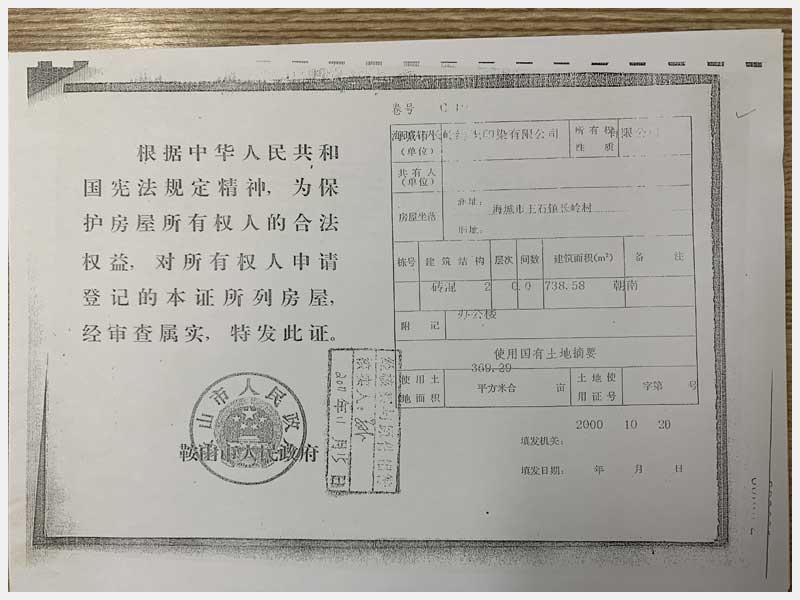 根据中华人民共和
国宪法规定精神，为保
护房屋所有权人的合法
权益，对所有权人申请
登记的本证所列房屋，
经审查属实，特发此证。
山市人民政
鞍山市人民政府
2011年11月15日
卷号
印染有限公司
所有权
性质
有限公司
(单位)
共有人
(单位)
房屋坐落
海城市王石镇长岭村
栋号 建筑结构 层次 间数 建筑面积(m²) 备注
砖混 2 0.0 738.58 朝南
附记
办公楼
使用国有土地摘要
369.29
使用土
地面积
平方米合 亩
土地使
用证号
字第 号
2000 10 20
填发机关:
填发日期: 年 月 日